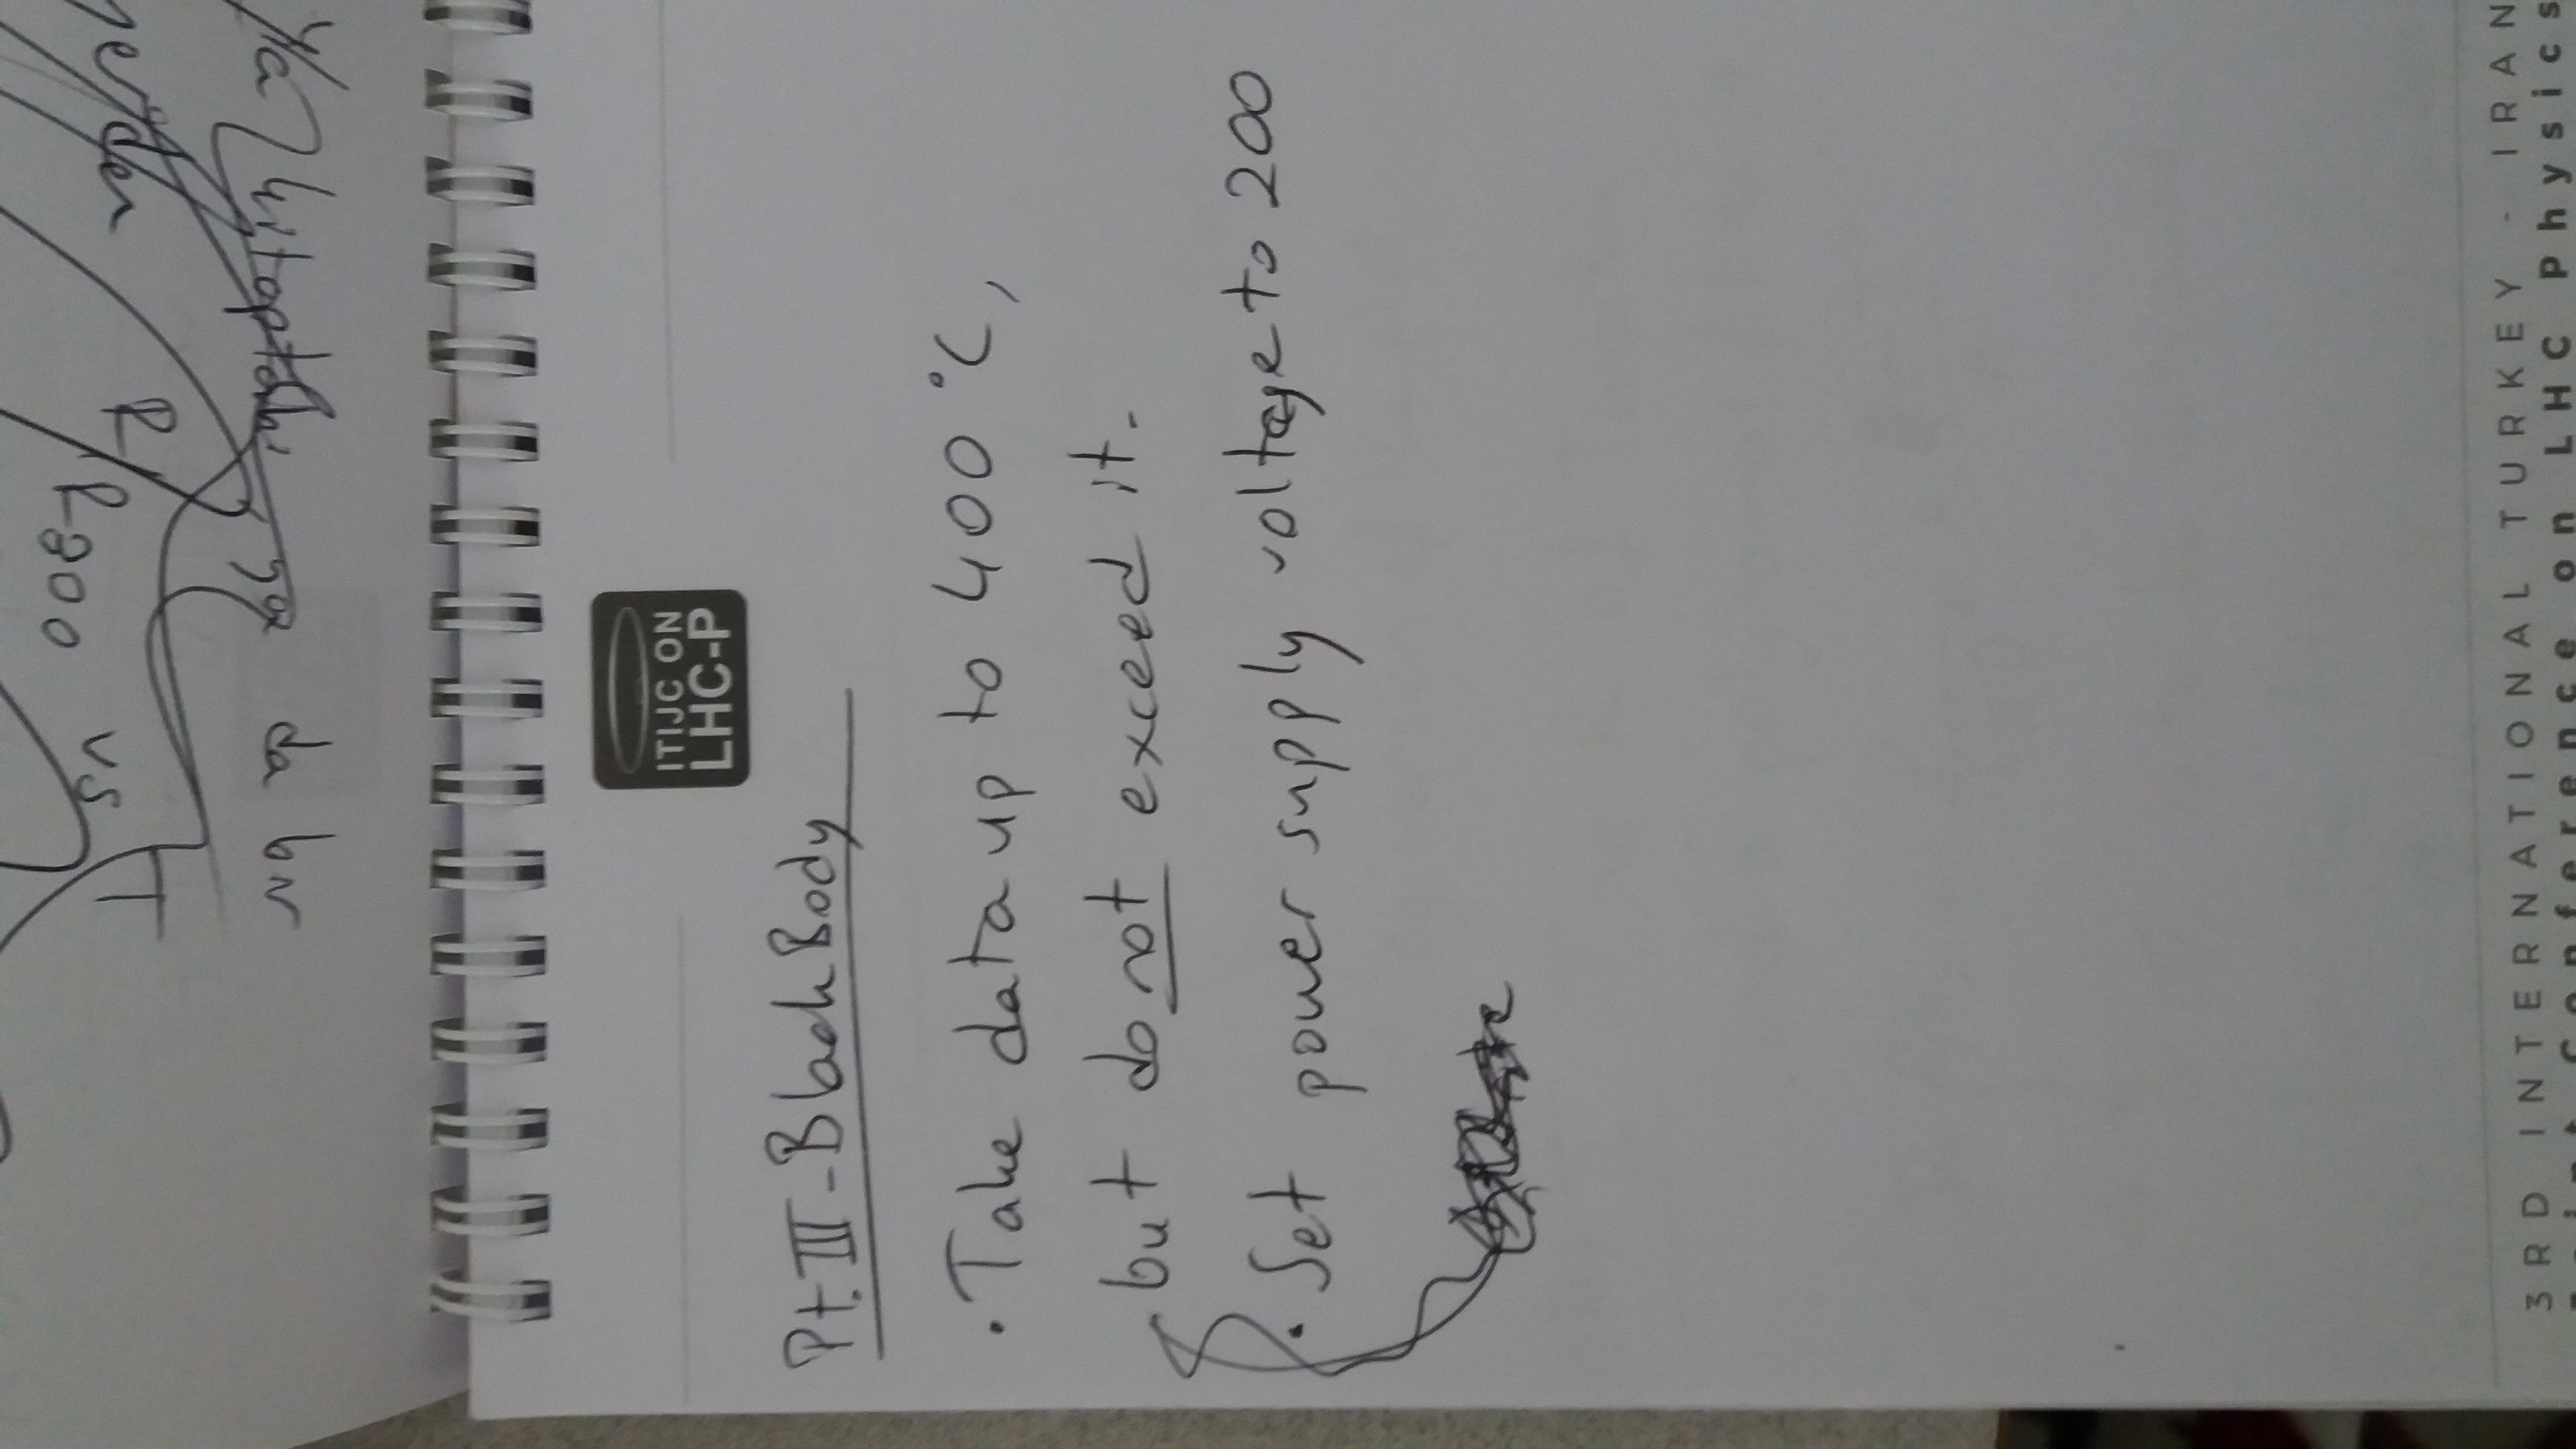 R-800 vs T
da bn
ITIJC ON
LHC-P
Pt. III - Black Body
• Take data up to 400 °C,
but do not exceed it.
• Set power supply voltage to 200
3RD INTERNATIONAL TURKEY - IRAN
Joint Conference on LHC Physics